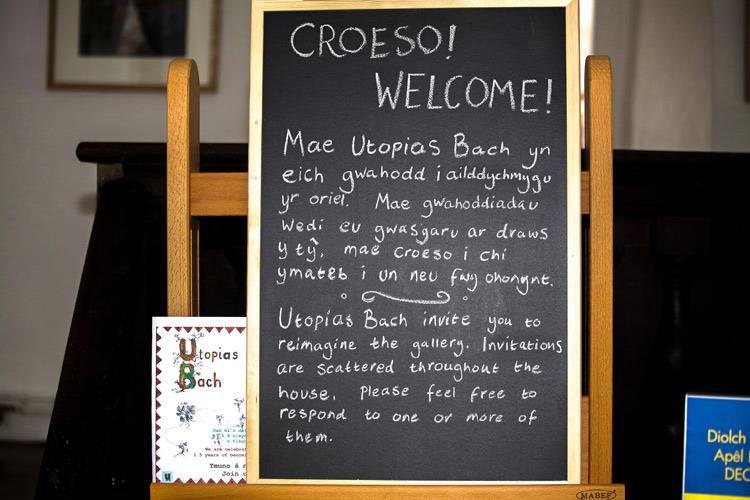 CROESO!
WELCOME!
Mae Utopias Bach yn
eich gwahodd i ailddychmygu
yr oriel. Mae gwahoddiadau
wedi eu gwasgaru ar draws
y tŷ, mae croeso i chi
ymateb i un neu fwy ohonynt.
Utopias Bach invite you to
reimagine the gallery. Invitations
are scattered throughout the
house. Please feel free to
respond to one or more of
them.
Utopias
Bach
We are celebrat
1.5 years of becom
Ymuno â n
Join u
Diolch
Apêl
DEC
MABEF